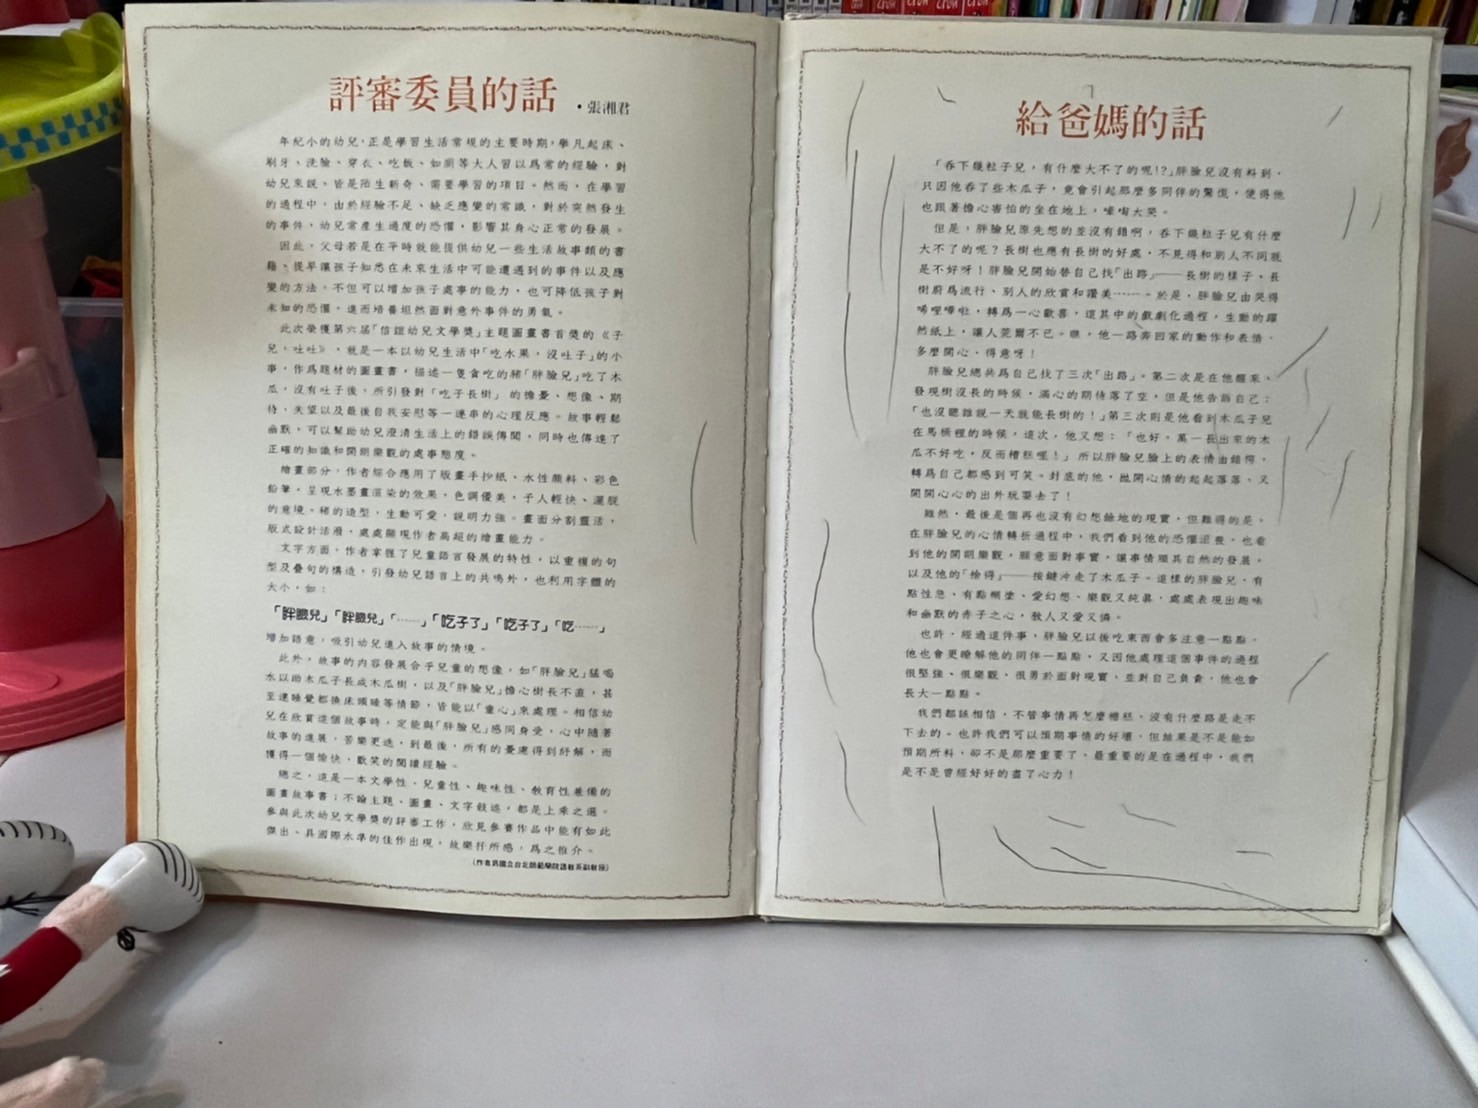 評審委員的話 ・張湘君
年紀小的幼兒，正是學習生活常規的主要時期，舉凡起床、
刷牙、洗臉、穿衣、吃飯、如廁等大人習以爲常的經驗，對
幼兒來說，皆是陌生新奇、需要學習的項目。然而，在學習
的過程中，由於經驗不足、缺乏應變的常識，對於突然發生
的事件，幼兒常產生過度的恐懼，影響其身心正常的發展。
因此，父母若是在平時就能提供幼兒一些生活故事類的書
籍，提早讓孩子知悉在未來生活中可能遭遇到的事件以及應
變的方法，不但可以增加孩子處事的能力，也可降低孩子對
未知的恐懼，進而培養坦然面對意外事件的勇氣。
此次榮獲第六屆「信誼幼兒文學獎」主題圖畫書首獎的《子
兒，吐吐》，就是一本以幼兒生活中「吃水果，沒吐子」的小
事，作爲題材的圖畫書，描述一隻貪吃的豬「胖臉兒」吃了木
瓜，沒有吐子後，所引發對「吃子長樹」的擔憂、想像、期
待、失望以及最後自我安慰等一連串的心理反應。故事輕鬆
幽默，可以幫助幼兒澄清生活上的錯誤傳聞，同時也傳達了
正確的知識和開朗樂觀的處事態度。
繪畫部分，作者綜合應用了版畫手抄紙、水性顏料、彩色
鉛筆，呈現水墨畫渲染的效果，色調優美，予人輕快、灑脫
的意境。豬的造型，生動可愛，說明力強。畫面分割靈活，
版式設計活潑，處處顯現作者高超的繪畫能力。
文字方面，作者掌握了兒童語言發展的特性，以重複的句
型及疊句的構造，引發幼兒語言上的共鳴外，也利用字體的
大小，如：
「胖臉兒」「胖臉兒」「……」「吃子了」「吃子了」「吃……」
增加語意，吸引幼兒進入故事的情境。
此外，故事的內容發展合乎兒童的想像，如「胖臉兒」猛喝
水以助木瓜子長成木瓜樹，以及「胖臉兒」擔心樹長不直，甚
至連睡覺都換床頭睡等情節，皆能以「童心」來處理。相信幼
兒在欣賞這個故事時，定能與「胖臉兒」感同身受，心中隨著
故事的進展，苦樂更迭，到最後，所有的憂慮得到紓解，而
獲得一個愉快、歡笑的閱讀經驗。
總之，這是一本文學性、兒童性、趣味性、教育性兼備的
圖畫故事書；不論主題、圖畫、文字敍述，都是上乘之選。
參與此次幼兒文學獎的評審工作，欣見參賽作品中能有如此
傑出、具國際水準的佳作出現，故樂抒所感，爲之推介。
（作者爲國立台北師範學院語教系副教授）
給爸媽的話
「吞下幾粒子兒，有什麼大不了的呢！？」胖臉兒沒有料到，
只因他吞了些木瓜子，竟會引起那麼多同伴的驚慌，使得他
也跟著擔心害怕的坐在地上，嚎啕大哭。
但是，胖臉兒原先想的並沒有錯啊，吞下幾粒子兒有什麼
大不了的呢？長樹也應有長樹的好處，不見得和別人不同就
是不好呀！胖臉兒開始替自己找「出路」——長樹的樣子、長
樹蔚爲流行、別人的欣賞和讚美……。於是，胖臉兒由哭得
唏哩嘩啦，轉爲一心歡喜，這其中的戲劇化過程，生動的躍
然紙上，讓人莞爾不已。瞧，他一路奔回家的動作和表情，
多麼開心，得意呀！
胖臉兒總共爲自己找了三次「出路」。第二次是在他醒來、
發現樹沒長的時候，滿心的期待落了空，但是他告訴自己：
「也沒聽誰說一天就能長樹的！」第三次則是他看到木瓜子兒
在馬桶裡的時候，這次，他又想：「也好，萬一長出來的木
瓜不好吃，反而糟糕喔！」所以胖臉兒臉上的表情由錯愕，
轉爲自己都感到可笑。封底的他，拋開心情的起起落落，又
開開心心的出外玩耍去了！
雖然，最後是個再也沒有幻想餘地的現實，但難得的是，
在胖臉兒的心情轉折過程中，我們看到他的恐懼沮喪，也看
到他的開朗樂觀，願意面對事實，讓事情順其自然的發展，
以及他的「捨得」——按鍵沖走了木瓜子。這樣的胖臉兒，有
點性急、有點糊塗、愛幻想、樂觀又純眞，處處表現出趣味
和幽默的赤子之心，教人又愛又憐。
也許，經過這件事，胖臉兒以後吃東西會多注意一點點，
他也會更瞭解他的同伴一點點，又因他處理這個事件的過程
很堅強、很樂觀、很勇於面對現實、並對自己負責，他也會
長大一點點。
我們都該相信，不管事情再怎麼糟糕，沒有什麼路是走不
下去的。也許我們可以預期事情的好壞，但結果是不是能如
預期所料，卻不是那麼重要了，最重要的是在過程中，我們
是不是曾經好好的盡了心力！